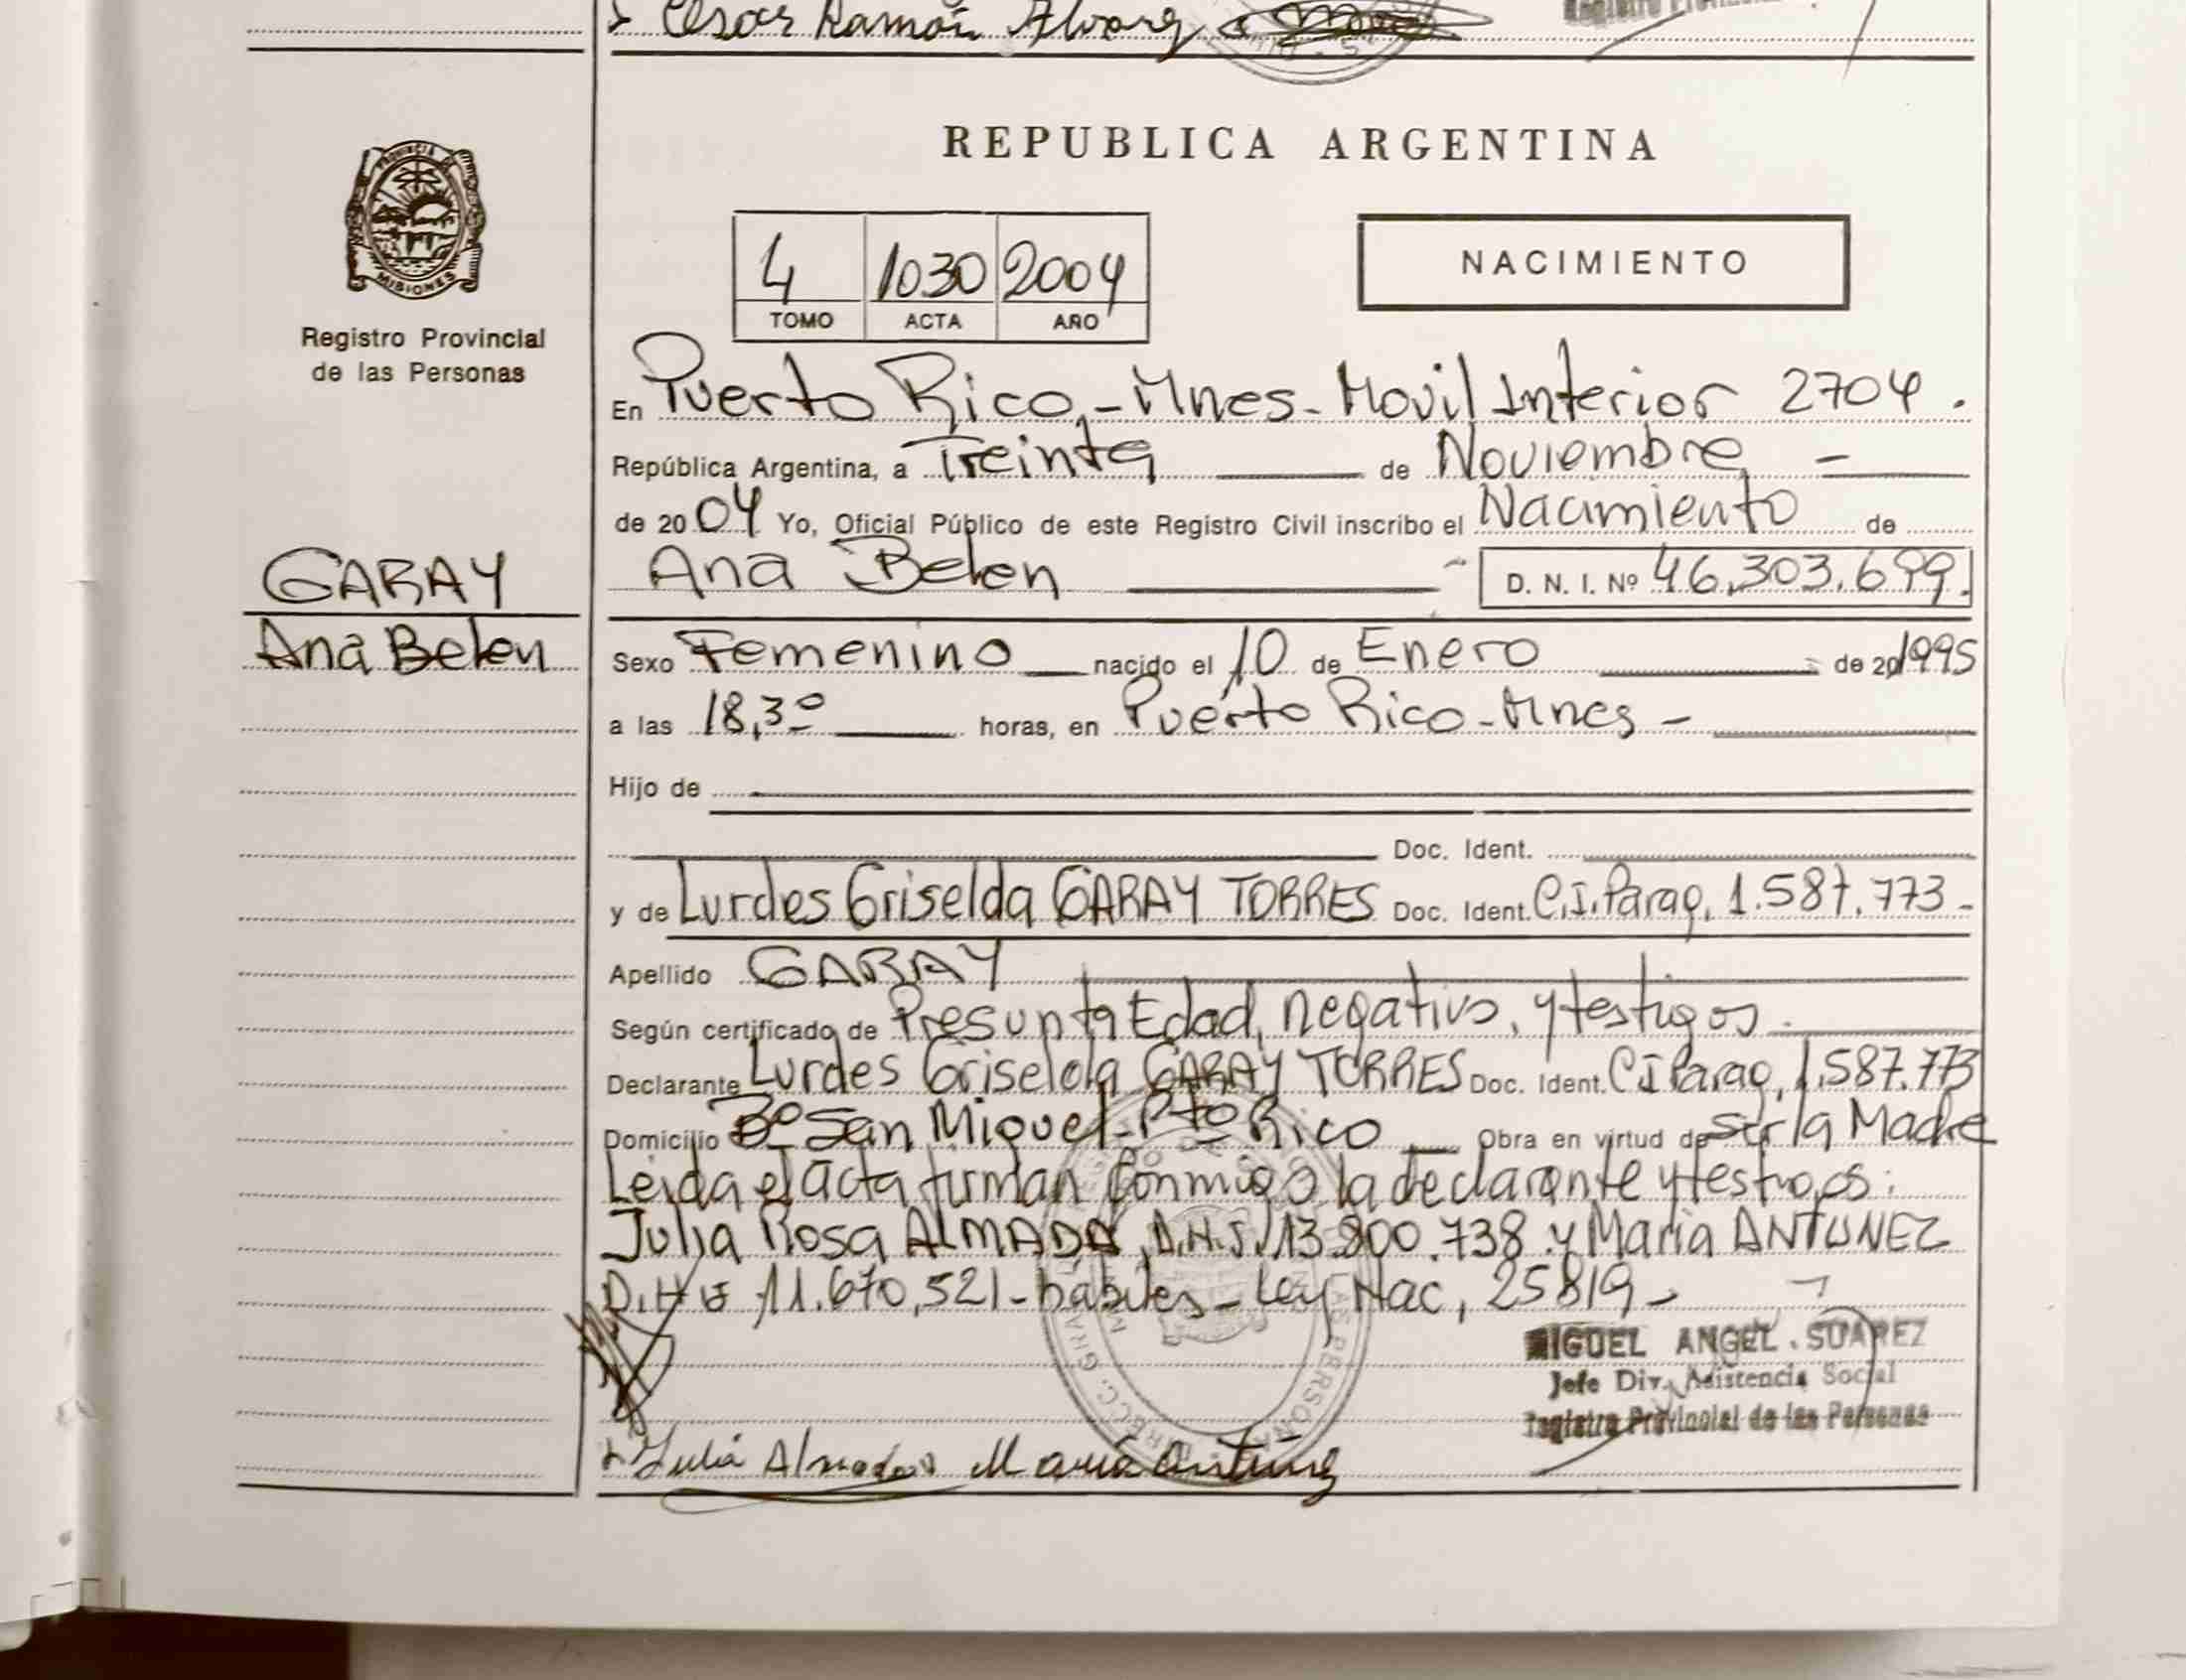 Cesar Ramón Alvarez
Registro Provin
REPUBLICA ARGENTINA
PROVINCIA DE
MISIONES
Registro Provincial
de las Personas
4 1030 2004
TOMO ACTA AÑO
NACIMIENTO
En Puerto Rico,-Mnes-Movil Interior 2704.
República Argentina, a Treinta de Noviembre -
de 2004 Yo, Oficial Público de este Registro Civil inscribo el Nacimiento de
GARAY
Ana Belen
Ana Belen D. N. I. Nº 46.303.699.
Sexo Femenino nacido el 10 de Enero de 20 1995
a las 18,30 horas, en Puerto Rico-Mnes-
Hijo de
Doc. Ident.
y de Lurdes Griselda GARAY TORRES Doc. Ident. C.I. Parag, 1.587.773-
Apellido GARAY
Según certificado de Presunta Edad, negativo, y testigos.
Declarante Lurdes Griselda GARAY TORRES Doc. Ident. CI Parag, 1.587.773
Domicilio Bº San Miguel-Pto Rico Obra en virtud de ser la Madre
Leida el acta firman conmigo la declarante y testigos:
Julia Rosa ALMADA, D.N.I. 13.800.738 y Maria ANTUNEZ
D.N.I. 11.670,521-habiles-Ley Nac, 25819-
MIGUEL ANGEL SUAREZ
Jefe Div. Asistencia Social
Registro Provincial de las Personas
Julia Almada Maria Antunez